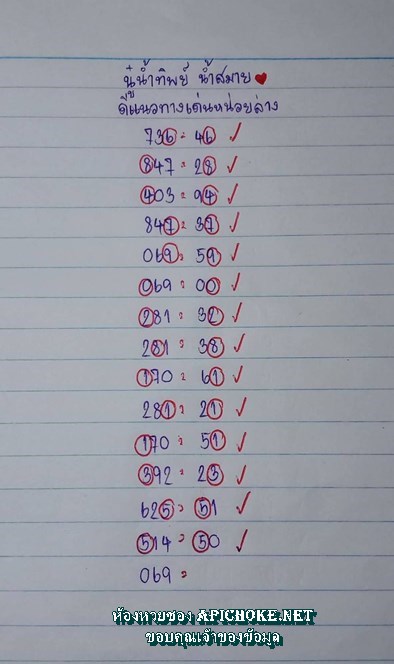 นู๋น้ำทิพย์ น้ำสมาย
ดีแนวทางเด่นหน่อยล่าง
736 = 46 ✓
847 = 28 ✓
403 = 94 ✓
847 = 37 ✓
069 = 59 ✓
069 = 00 ✓
281 = 32 ✓
281 = 38 ✓
170 = 61 ✓
281 = 21 ✓
170 = 51 ✓
392 = 23 ✓
625 = 51 ✓
514 = 50 ✓
069 =
ห้องหวยซอง APICHOKE.NET
ขอบคุณเจ้าของข้อมูล